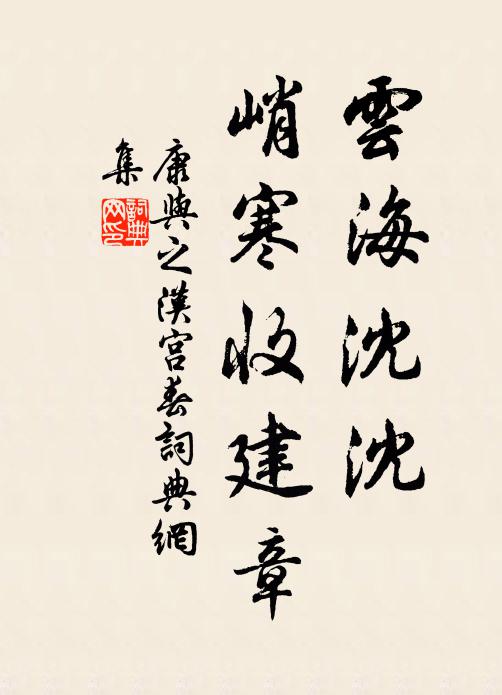 雲海沈沈
峭寒收建章
康與之漢宮春詞典網
集
詞典
网印